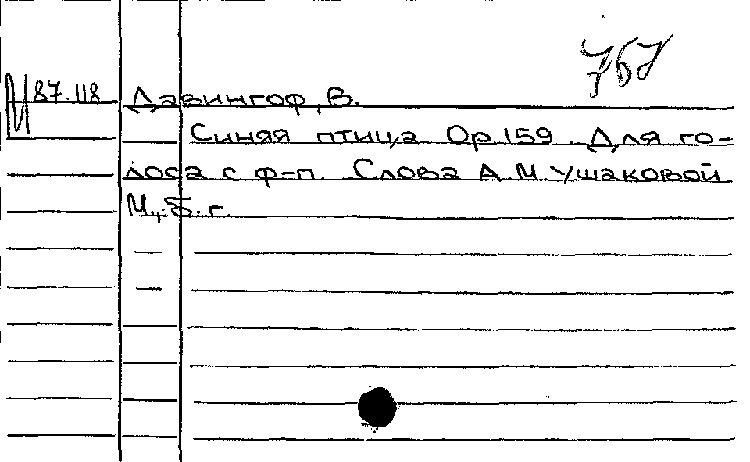 757
И 87.118 Давингоф, В.
Синяя птица Op.159. Для го-
лоса с ф-п. Слова А.М. Ушаковой
М., б.г.